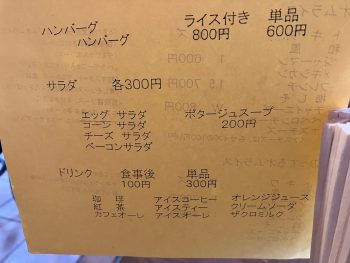 ハンバーグ ライス付き 単品
ハンバーグ 800円 600円
サラダ 各300円
エッグ サラダ ポタージュスープ
コーン サラダ 200円
チーズ サラダ
ベーコンサラダ
ドリンク 食事後 単品
100円 300円
珈 琲 アイスコーヒー オレンジジュース
紅 茶 アイスティー クリームソーダ
カフェオーレ アイスオーレ ザクロミルク